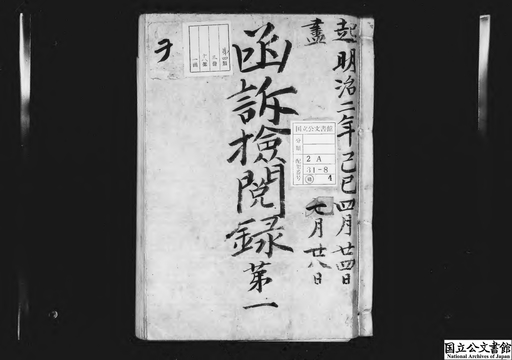 起明治二年己巳四月廿四日
盡　　　　　　七月廿八日
函訴檢閲録第一
ヲ
国立公文書館
分類
配架番号
2 A
31-8
1
国立公文書館
National Archives of Japan